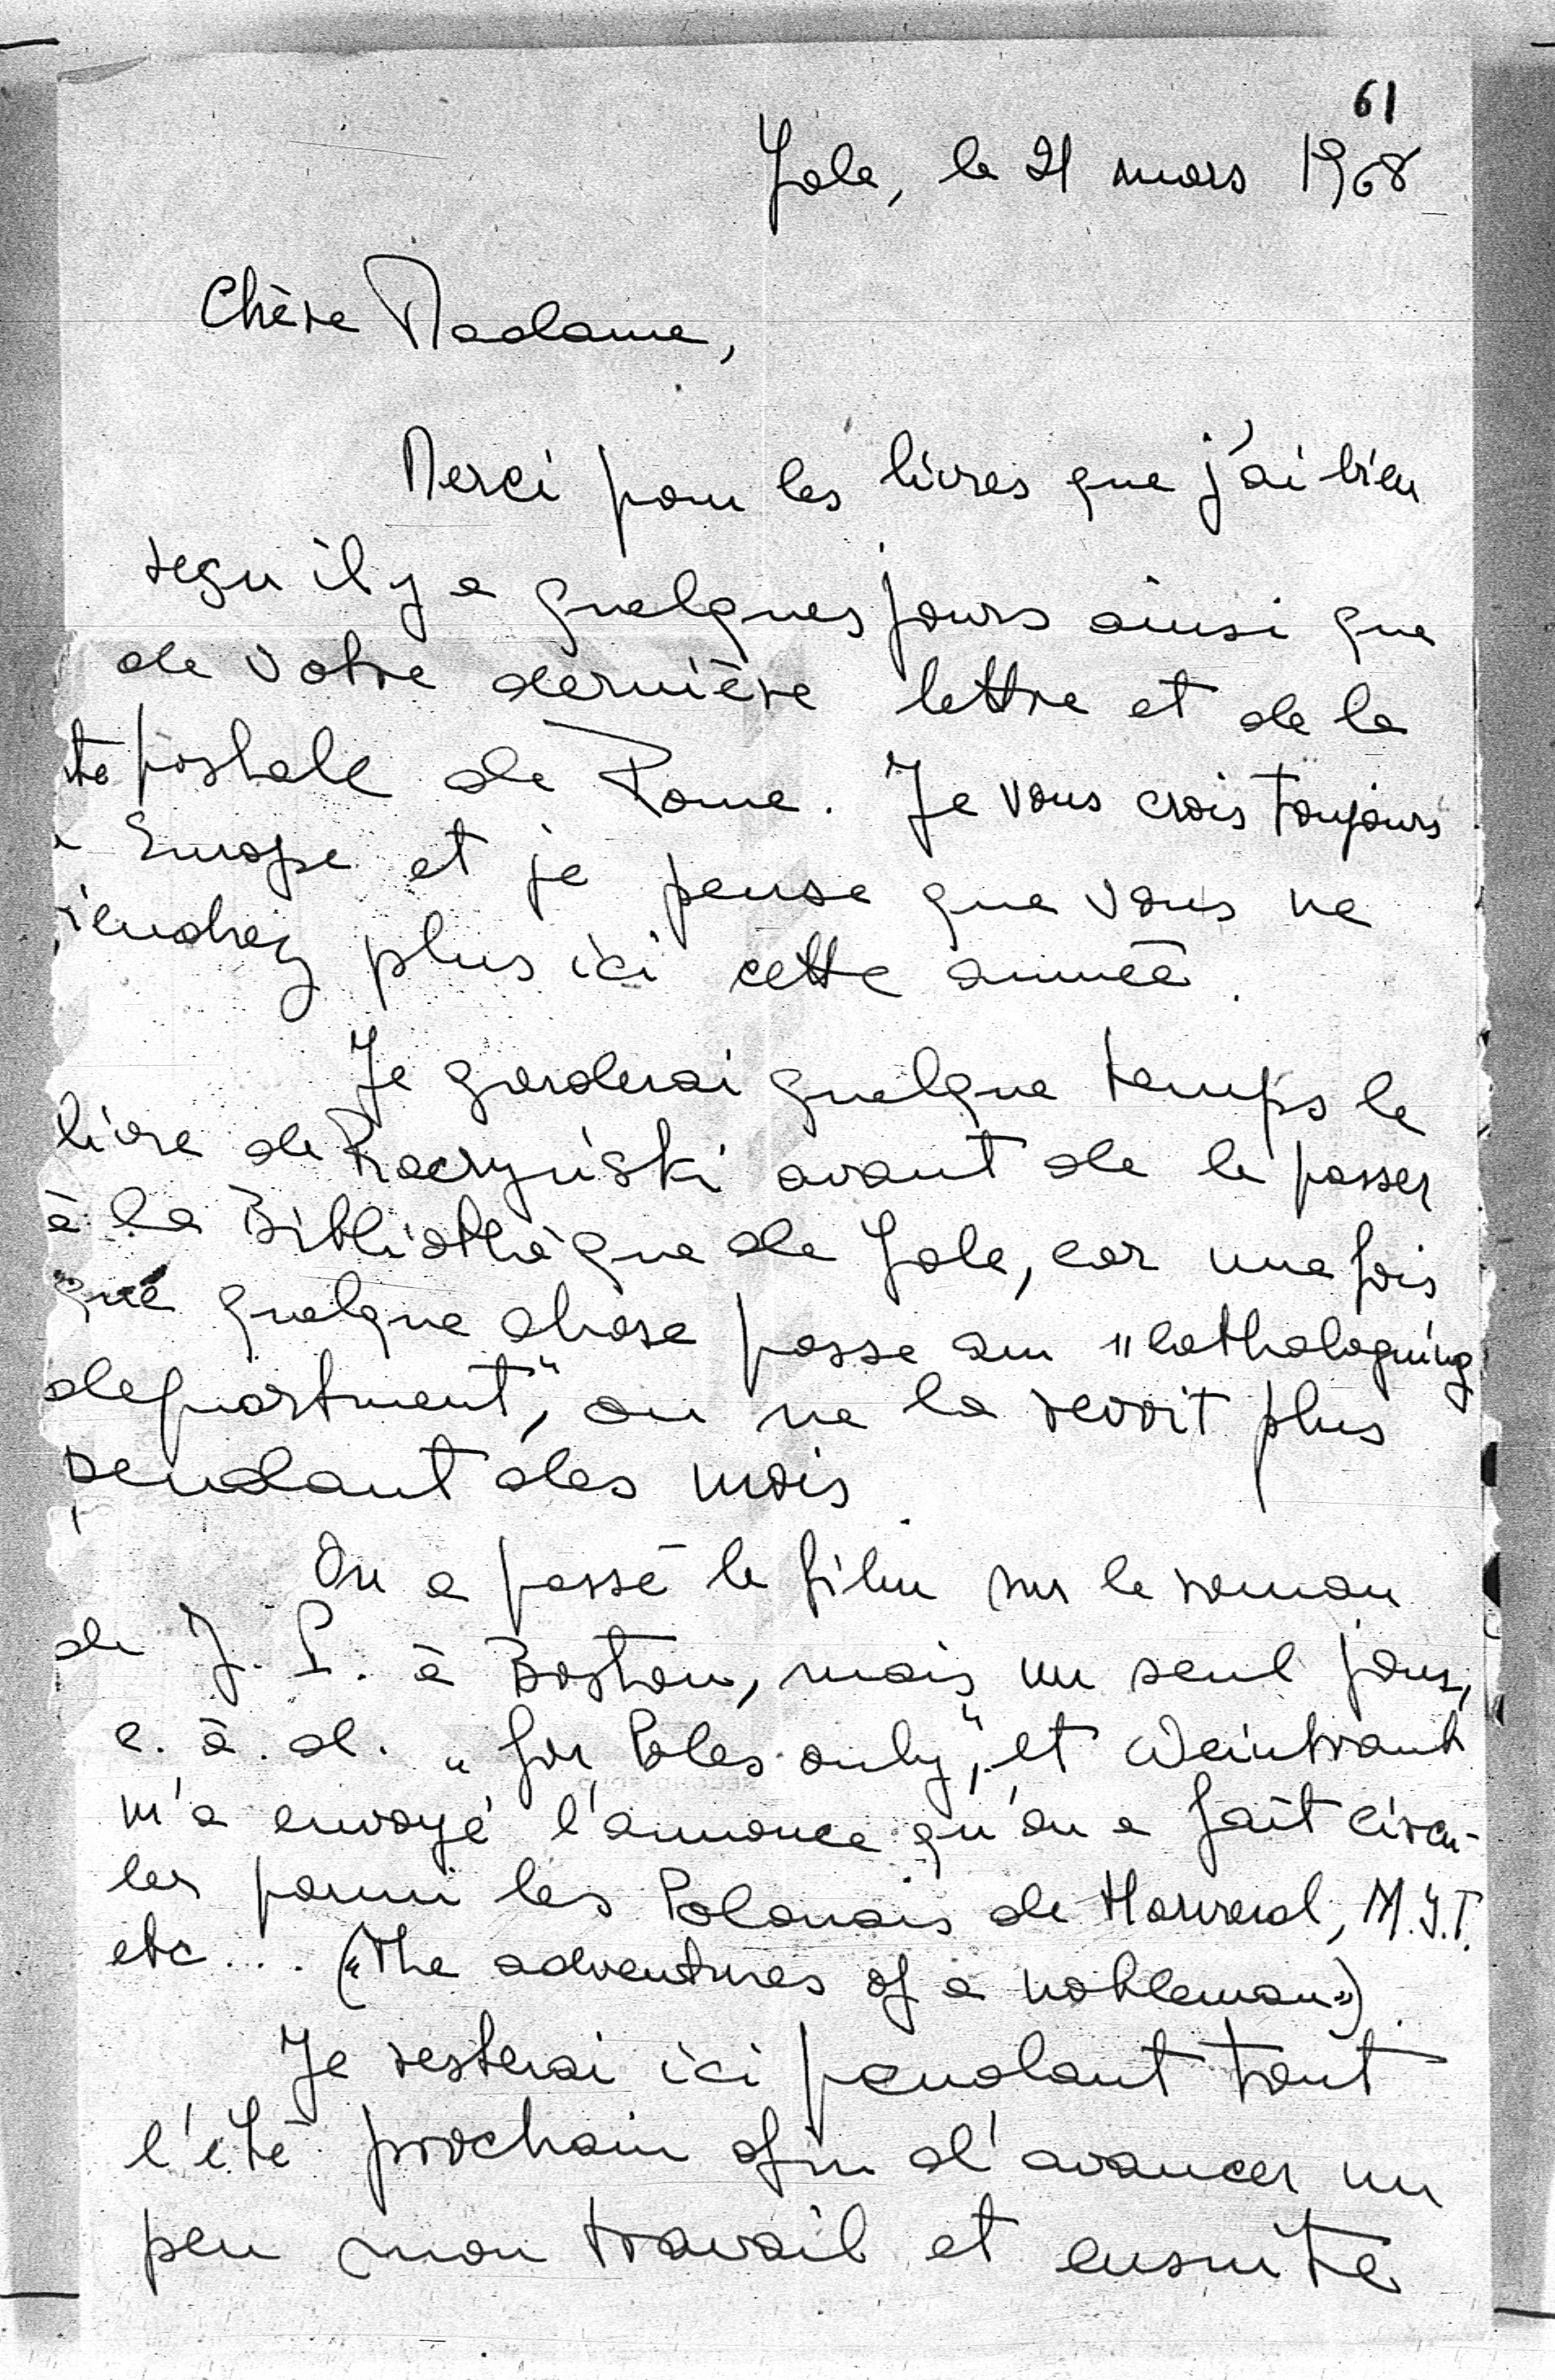 61
Yale, le 21 mars 1968
Chère Madame,
Merci pour les livres que j'ai bien
reçu il y a quelques jours ainsi que
de votre dernière lettre et de la
te postale de Rome. Je vous crois toujours
Europe et je pense que vous ne
iendrez plus ici cette année.
Je garderai quelque temps le
livre de Raczyński avant de le passer
à la Bibliothèque de Yale, car une fois
que quelque chose passe au "cathaloguing
department", on ne la revoit plus
pendant des mois.
On a passé le film sur le roman
de J. P. à Boston, mais un seul jour,
c. à. d. "for Poles only", et Weintraub
m'a envoyé l'annonce qu'on a fait circu-
ler parmi les Polonais de Harvard, M.I.T.
etc.... («The adventures of a nobleman»).
Je resterai ici pendant tout
l'été prochain afin d'avancer un
peu mon travail et ensuite